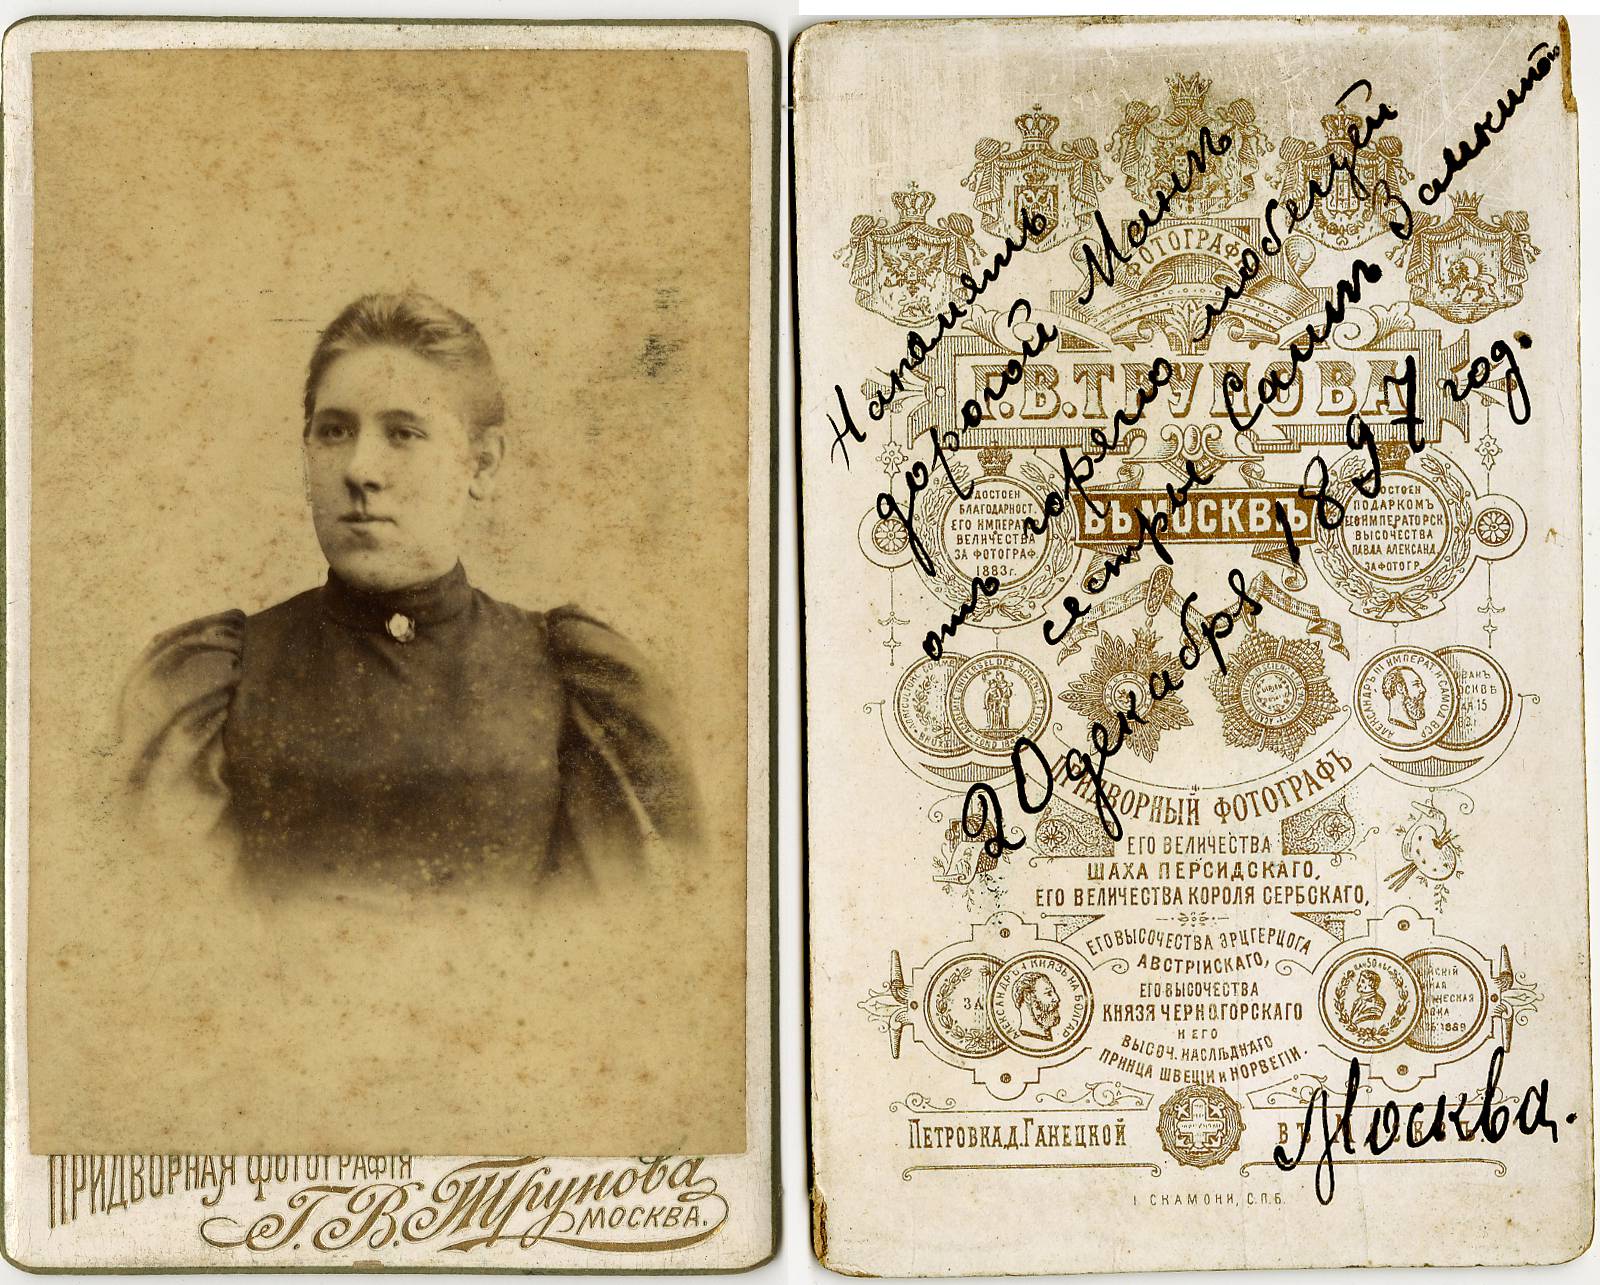 ПРИДВОРНАЯ ФОТОГРАФIЯ
Г. В. Трунова
МОСКВА.
ФОТОГРАФ
Г.В.ТРУНОВА
ВЪ МОСКВѢ
ДОСТОЕН
БЛАГОДАРНОСТ.
ЕГО ИМПЕРАТ
ВЕЛИЧЕСТВА
ЗА ФОТОГРАФ.
1883г.
ДОСТОЕН
ПОДАРКОМЪ
ЕГО ИМПЕРАТОРСК
ВЫСОЧЕСТВА
ПАВЛА АЛЕКСАНД.
ЗА ФОТОГР.
ПРИДВОРНЫЙ ФОТОГРАФЪ
ЕГО ВЕЛИЧЕСТВА
ШАХА ПЕРСИДСКАГО,
ЕГО ВЕЛИЧЕСТВА КОРОЛЯ СЕРБСКАГО,
ЕГО ВЫСОЧЕСТВА ЭРЦГЕРЦОГА
АВСТРIЙСКАГО,
ЕГО ВЫСОЧЕСТВА
КНЯЗЯ ЧЕРНОГОРСКАГО
И ЕГО
ВЫСОЧ. НАСЛѢДНАГО
ПРИНЦА ШВЕЦIИ и НОРВЕГIИ.
ПЕТРОВКА,Д.ГАНЕЦКОЙ
I. СКАМОНИ, С.П.Б.
На память
дорогой Мани
отъ горячо любещей
сестры Саши
20 декабрѣ 1897 год.
Москва.